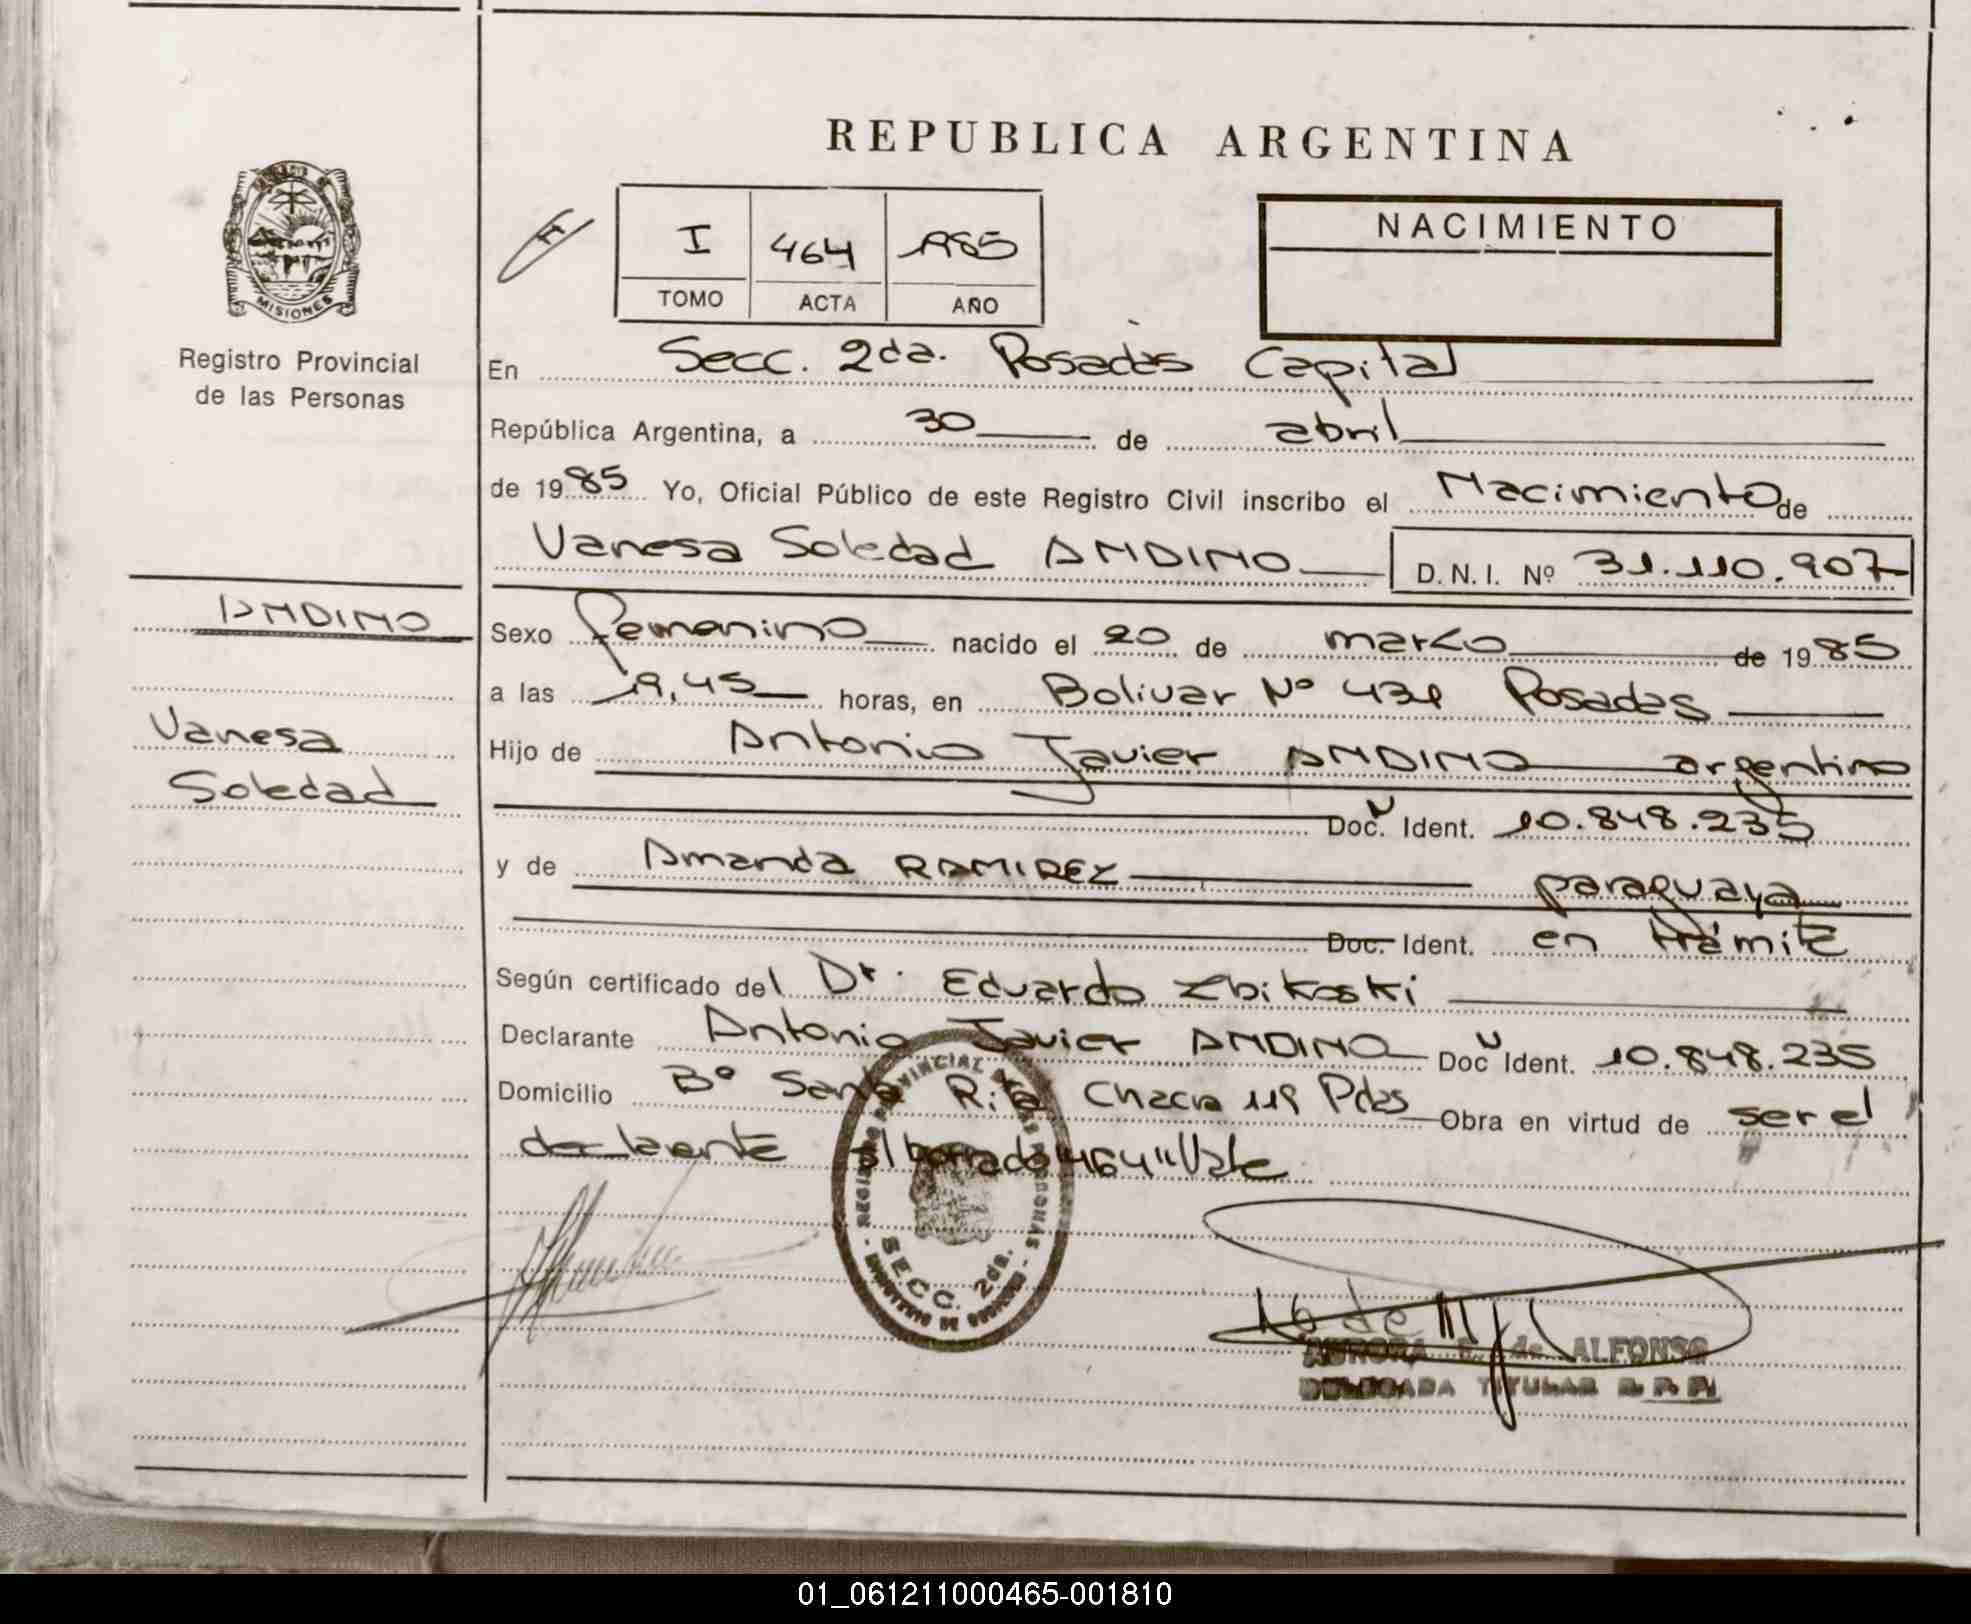 REPUBLICA ARGENTINA
NACIMIENTO
I 464 1985
TOMO ACTA AÑO
MISIONES
Registro Provincial
de las Personas
En Secc. 2da. Posadas Capital
República Argentina, a 30 de abril
de 1985 Yo, Oficial Público de este Registro Civil inscribo el Nacimiento de
Vanesa Soledad ANDINO D.N.I. Nº 31.110.907
ANDINO
Vanesa
Soledad
Sexo femenino nacido el 20 de marzo de 1985
a las 19,45 horas, en Bolivar Nº 431 Posadas
Hijo de Antonio Javier ANDINO argentino
Doc. Ident. 10.848.235
y de Amanda RAMIREZ paraguaya
Doc. Ident. en trámite
Según certificado del Dr. Eduardo Zbikoski
Declarante Antonio Javier ANDINO Doc Ident. 10.848.235
Domicilio Bº Santa Rita Chacra 119 Pdas Obra en virtud de ser el
declarante el borrado "464" Vale
SECC. 2da.
AURORA de ALFONSO
DELEGADA TITULAR R. P. P.
01_061211000465-001810